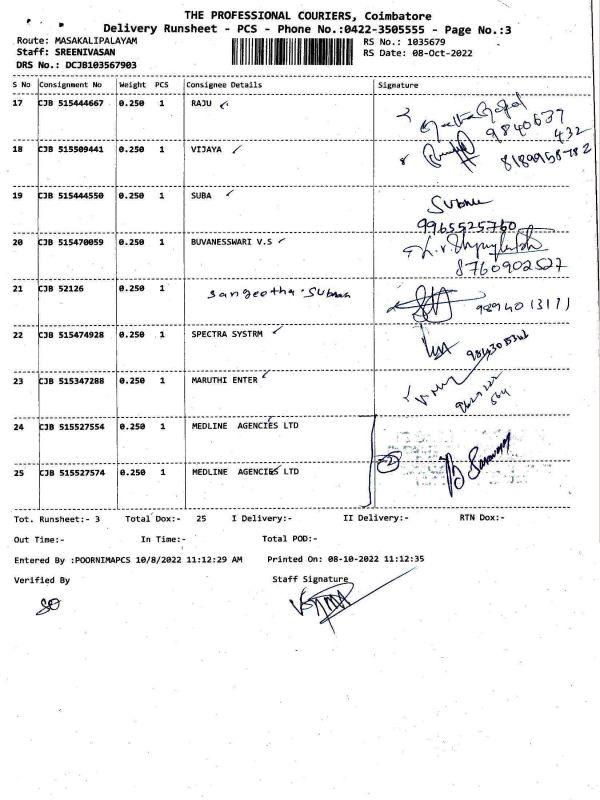 THE PROFESSIONAL COURIERS, Coimbatore
Delivery Runsheet - PCS - Phone No.:0422-3505555 - Page No.:3
Route: MASAKALIPALAYAM
RS No.: 1035679
Staff: SREENIVASAN
RS Date: 08-Oct-2022
DRS No.: DCJB103567903
S No Consignment No Weight PCS Consignee Details Signature
17 CJB 515444667 0.250 1 RAJU
9840637
432
18 CJB 515509441 0.250 1 VIJAYA
8189958782
19 CJB 515444550 0.250 1 SUBA
9965525760
20 CJB 515470059 0.250 1 BUVANESSWARI V.S
8760902527
21 CJB 52126 0.250 1 Sangeetha Subman
22 CJB 515474928 0.250 1 SPECTRA SYSTRM
23 CJB 515347288 0.250 1 MARUTHI ENTER
24 CJB 515527554 0.250 1 MEDLINE AGENCIES LTD
25 CJB 515527574 0.250 1 MEDLINE AGENCIES LTD
2
Tot. Runsheet:- 3 Total Dox:- 25 I Delivery:- II Delivery:- RTN Dox:-
Out Time:- In Time:- Total POD:-
Entered By :POORNIMAPCS 10/8/2022 11:12:29 AM Printed On: 08-10-2022 11:12:35
Verified By Staff Signature